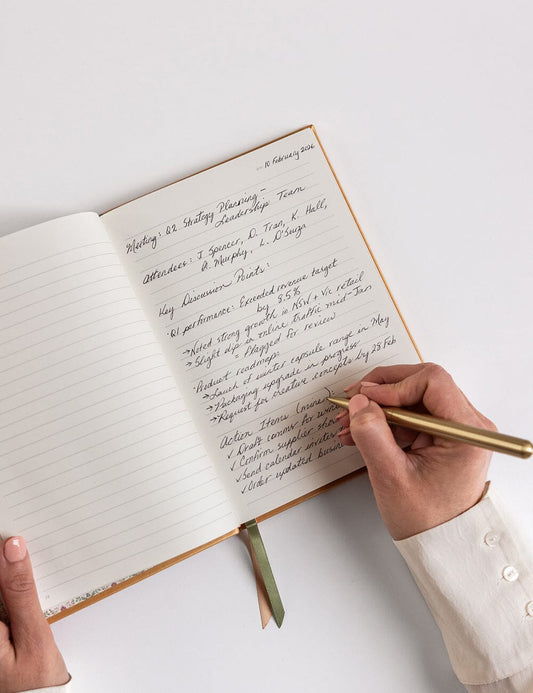 10 February 2026
Meeting: Q2 Strategy Planning –
Leadership Team
Attendees: J. Spencer, D. Tran, K. Hall,
A. Murphy, L. D'Souza
Key Discussion Points:
· Q1 performance: Exceeded revenue target
by 8.5%
→ Noted strong growth in NSW + Vic retail
→ Slight dip in online traffic mid-Jan
– Flagged for review
· Product roadmap:
→ Launch of winter capsule range in May
→ Packaging upgrade in progress
→ Request for creative concepts by 28 Feb
Action Items (mine):
✓ Draft comms for
✓ Confirm supplier
✓ Send calendar invites
✓ Order updated